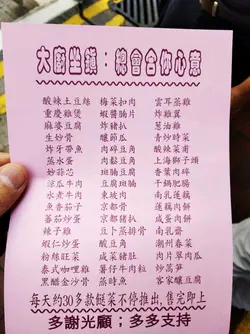 大廚坐鎮：總會合你心意
酸辣土豆絲 梅菜扣肉 雲耳蒸雞
重慶雞煲 蝦醬腩片 炸雞翼
麻婆豆腐 炸豬扒 蔥油雞
生炒骨 釀節瓜 青炒時菜
炸牛肉 肉碎豆角 酸辣菜甫
蒸水蛋 肉鬆豆角 上海獅子頭
斑腩豆腐 香葉肉碎
涼瓜牛肉 豆豆腐斑腩 干鍋肥腸
水煮牛肉 東坡肉 南乳蓮藕
魚香茄子 京都骨 蓮藕肉餅
蕃茄炒蛋 京都豬扒 咸蛋肉餅
辣子雞 豆豉蒸排骨 南乳齋
蝦仁炒蛋 酸豆角 潮州春菜
粉絲旺菜 咸菜豬肚 肉片翠肉瓜
泰式咖喱雞 薯仔牛肉粒 炒萵笋
黑醋金沙骨 蒸時魚 客家釀豆腐
每天約30多款餸菜不停推出，售完即止
多謝光顧；多多支持